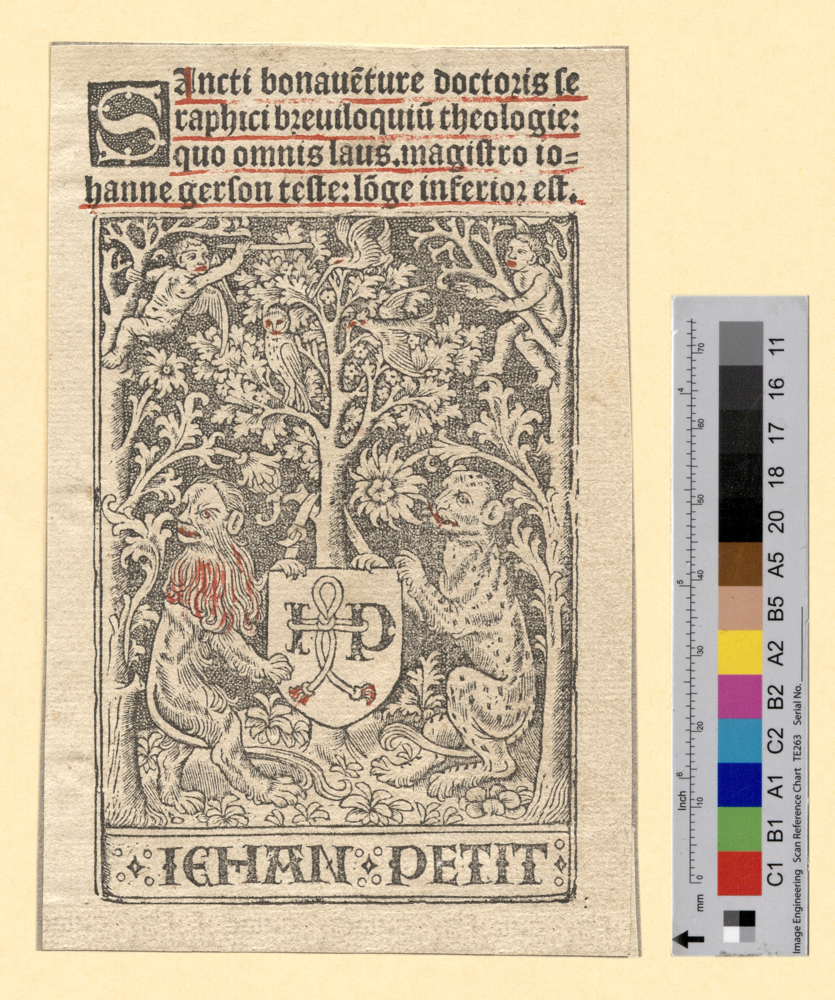 SAncti bonauẽture doctoꝛis ſe
raphici bꝛeuiloquiũ theologie:
quo omnis laus. magiſtro io=
hanne gerſon teſte: lõge inferioꝛ eſt.
I P
IEHAN PETIT
11
16
17
18
20
A5
B5
A2
B2
C2
A1
B1
C1
70
60
50
40
30
20
10
0
mm
4
5
6
Inch
Image Engineering Scan Reference Chart TE263 Serial No.